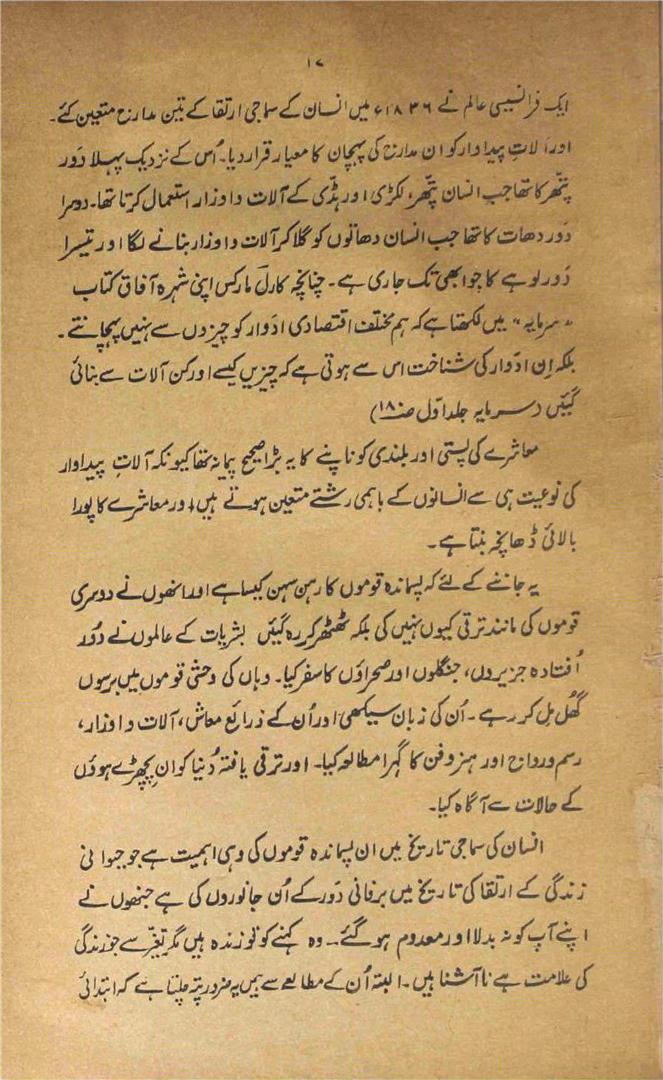 ۱۷
ایک فرانسیسی عالم نے ۱۸۳۶ء میں انسان کے سماجی ارتقا کے تین مدارج متعین کئے۔
اور آلاتِ پیداوار کو ان مدارج کی پہچان کا معیار قرار دیا۔ اُس کے نزدیک پہلا دَور
پتھّر کا تھا جب انسان پتّھر، لکڑی اور ہڈّی کے آلات و اوزار استعمال کرتا تھا۔ دوسرا
دَور دھات کا تھا جب انسان دھاتوں کو گلا کر آلات و اوزار بنانے لگا اور تیسرا
دَور لوہے کا جو ابھی تک جاری ہے۔ چنانچہ کارل مارکس اپنی شہرہ آفاق کتاب
"سرمایہ" میں لکھتا ہے کہ ہم مختلف اقتصادی ادَوار کو چیزوں سے نہیں پہچانتے۔
بلکہ اِن ادَوار کی شناخت اس سے ہوتی ہے کہ چیزیں کیسے اور کن آلات سے بنائی
گئیں (سرمایہ جلد اوّل صـ۱۸)
معاشرے کی پستی اور بلندی کو ناپنے کا یہ بڑا صحیح پیمانہ تھا کیونکہ آلاتِ پیداوار
کی نوعیت ہی سے انسانوں کے باہمی رشتے متعین ہوتے ہیں اور معاشرے کا پورا
بالائی ڈھانچہ بنتا ہے۔
یہ جاننے کے لئے کہ پسماندہ قوموں کا رہن سہن کیسا ہے اور انھوں نے دوسری
قوموں کی مانند ترقی کیوں نہیں کی بلکہ ٹھٹھر کر رہ گئیں بشریات کے عالموں نے دُور
اُفتادہ جزیروں، جنگلوں اور صحراؤں کا سفر کیا۔ وہاں کی وحشی قوموں میں برسوں
گھُل مِل کر رہے۔ اُن کی زبان سیکھی اور اُن کے ذرائع معاش، آلات و اوزار،
رسم و رواج اور ہنر و فن کا گہرا مطالعہ کیا۔ اور ترقی یافتہ دُنیا کو ان پچھڑے ہوؤں
کے حالات سے آگاہ کیا۔
انسان کی سماجی تاریخ میں ان پسماندہ قوموں کی وہی اہمیت ہے جو حیوانی
زندگی کے ارتقا کی تاریخ میں برفانی دَور کے اُن جانوروں کی ہے جنھوں نے
اپنے آپ کو نہ بدلا اور معدوم ہو گئے۔ وہ کہنے کو تو زندہ ہیں مگر تغیّر سے جو زندگی
کی علامت ہے نا آشنا ہیں۔ البتہ اُن کے مطالعے سے ہمیں یہ ضرور پتہ چلتا ہے کہ ابتدائی